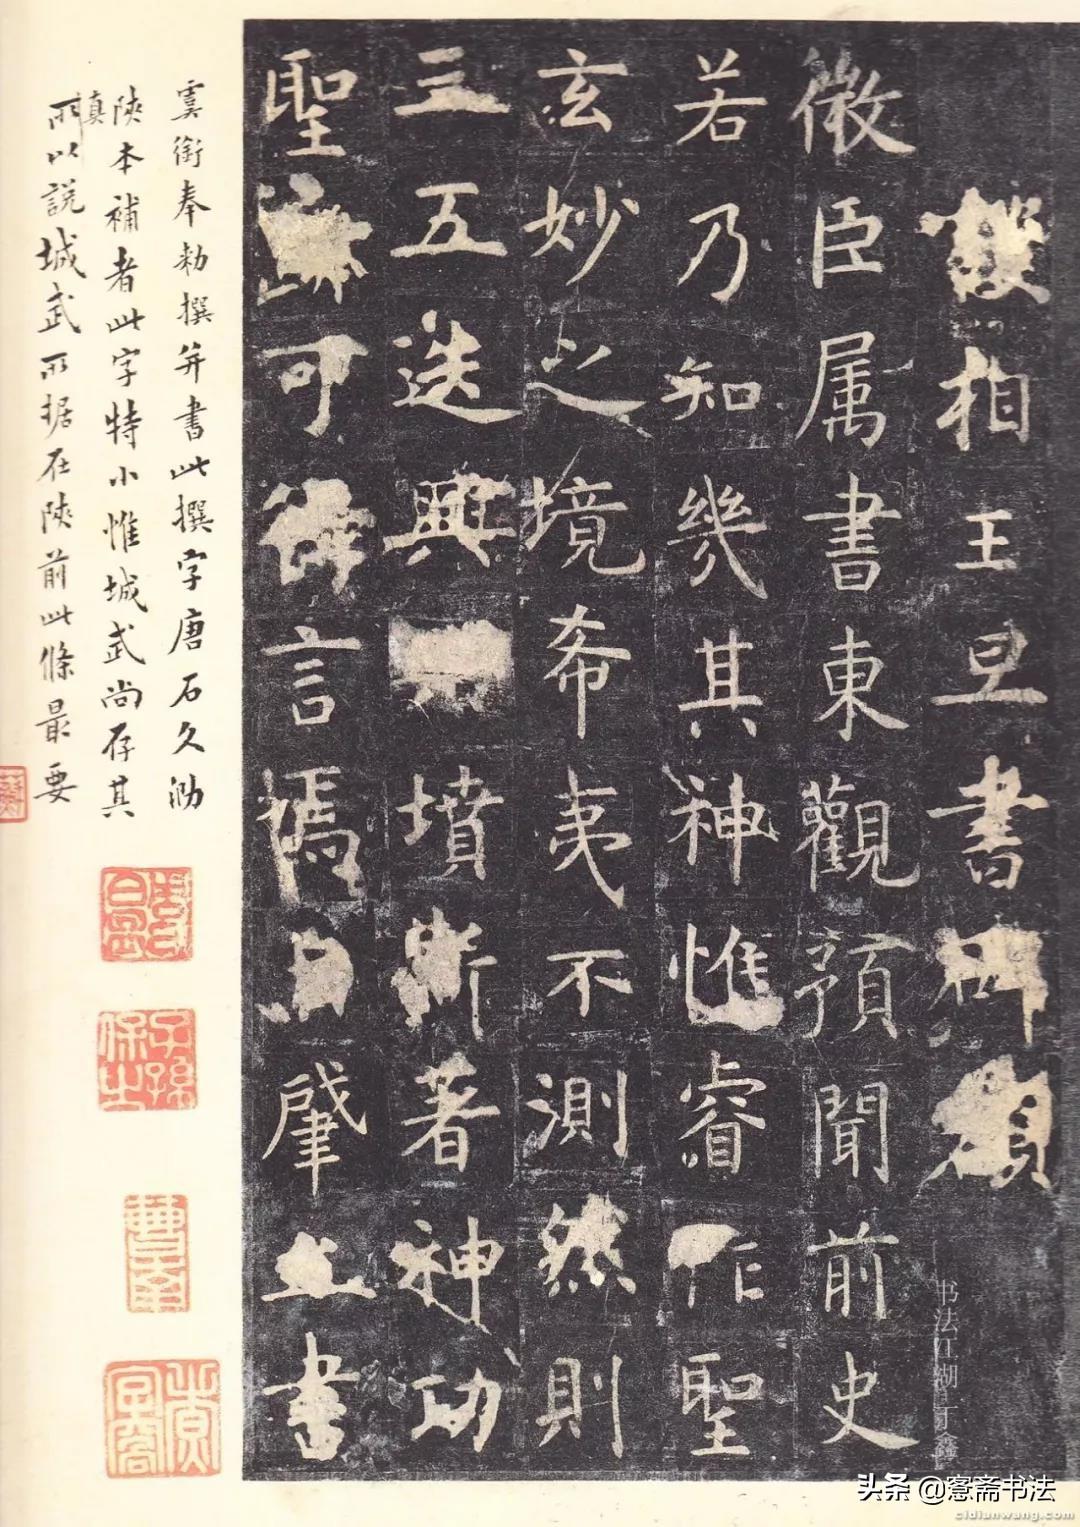 護相王旦書碑額
微臣属書東觀預聞前史
若乃知幾其神惟睿作聖
玄妙之境希夷不測然則
三五迭興典墳斯著神功
聖迹可得言焉自肇立書
虞銜奉勅撰并書此撰字唐石久泐
陝本補者此字特小惟城武尚存其
真所以說城武所据在陝前此條最要
子孫保之
书法江湖 丁鑫
头条 @愙斋书法
cidianwang.com